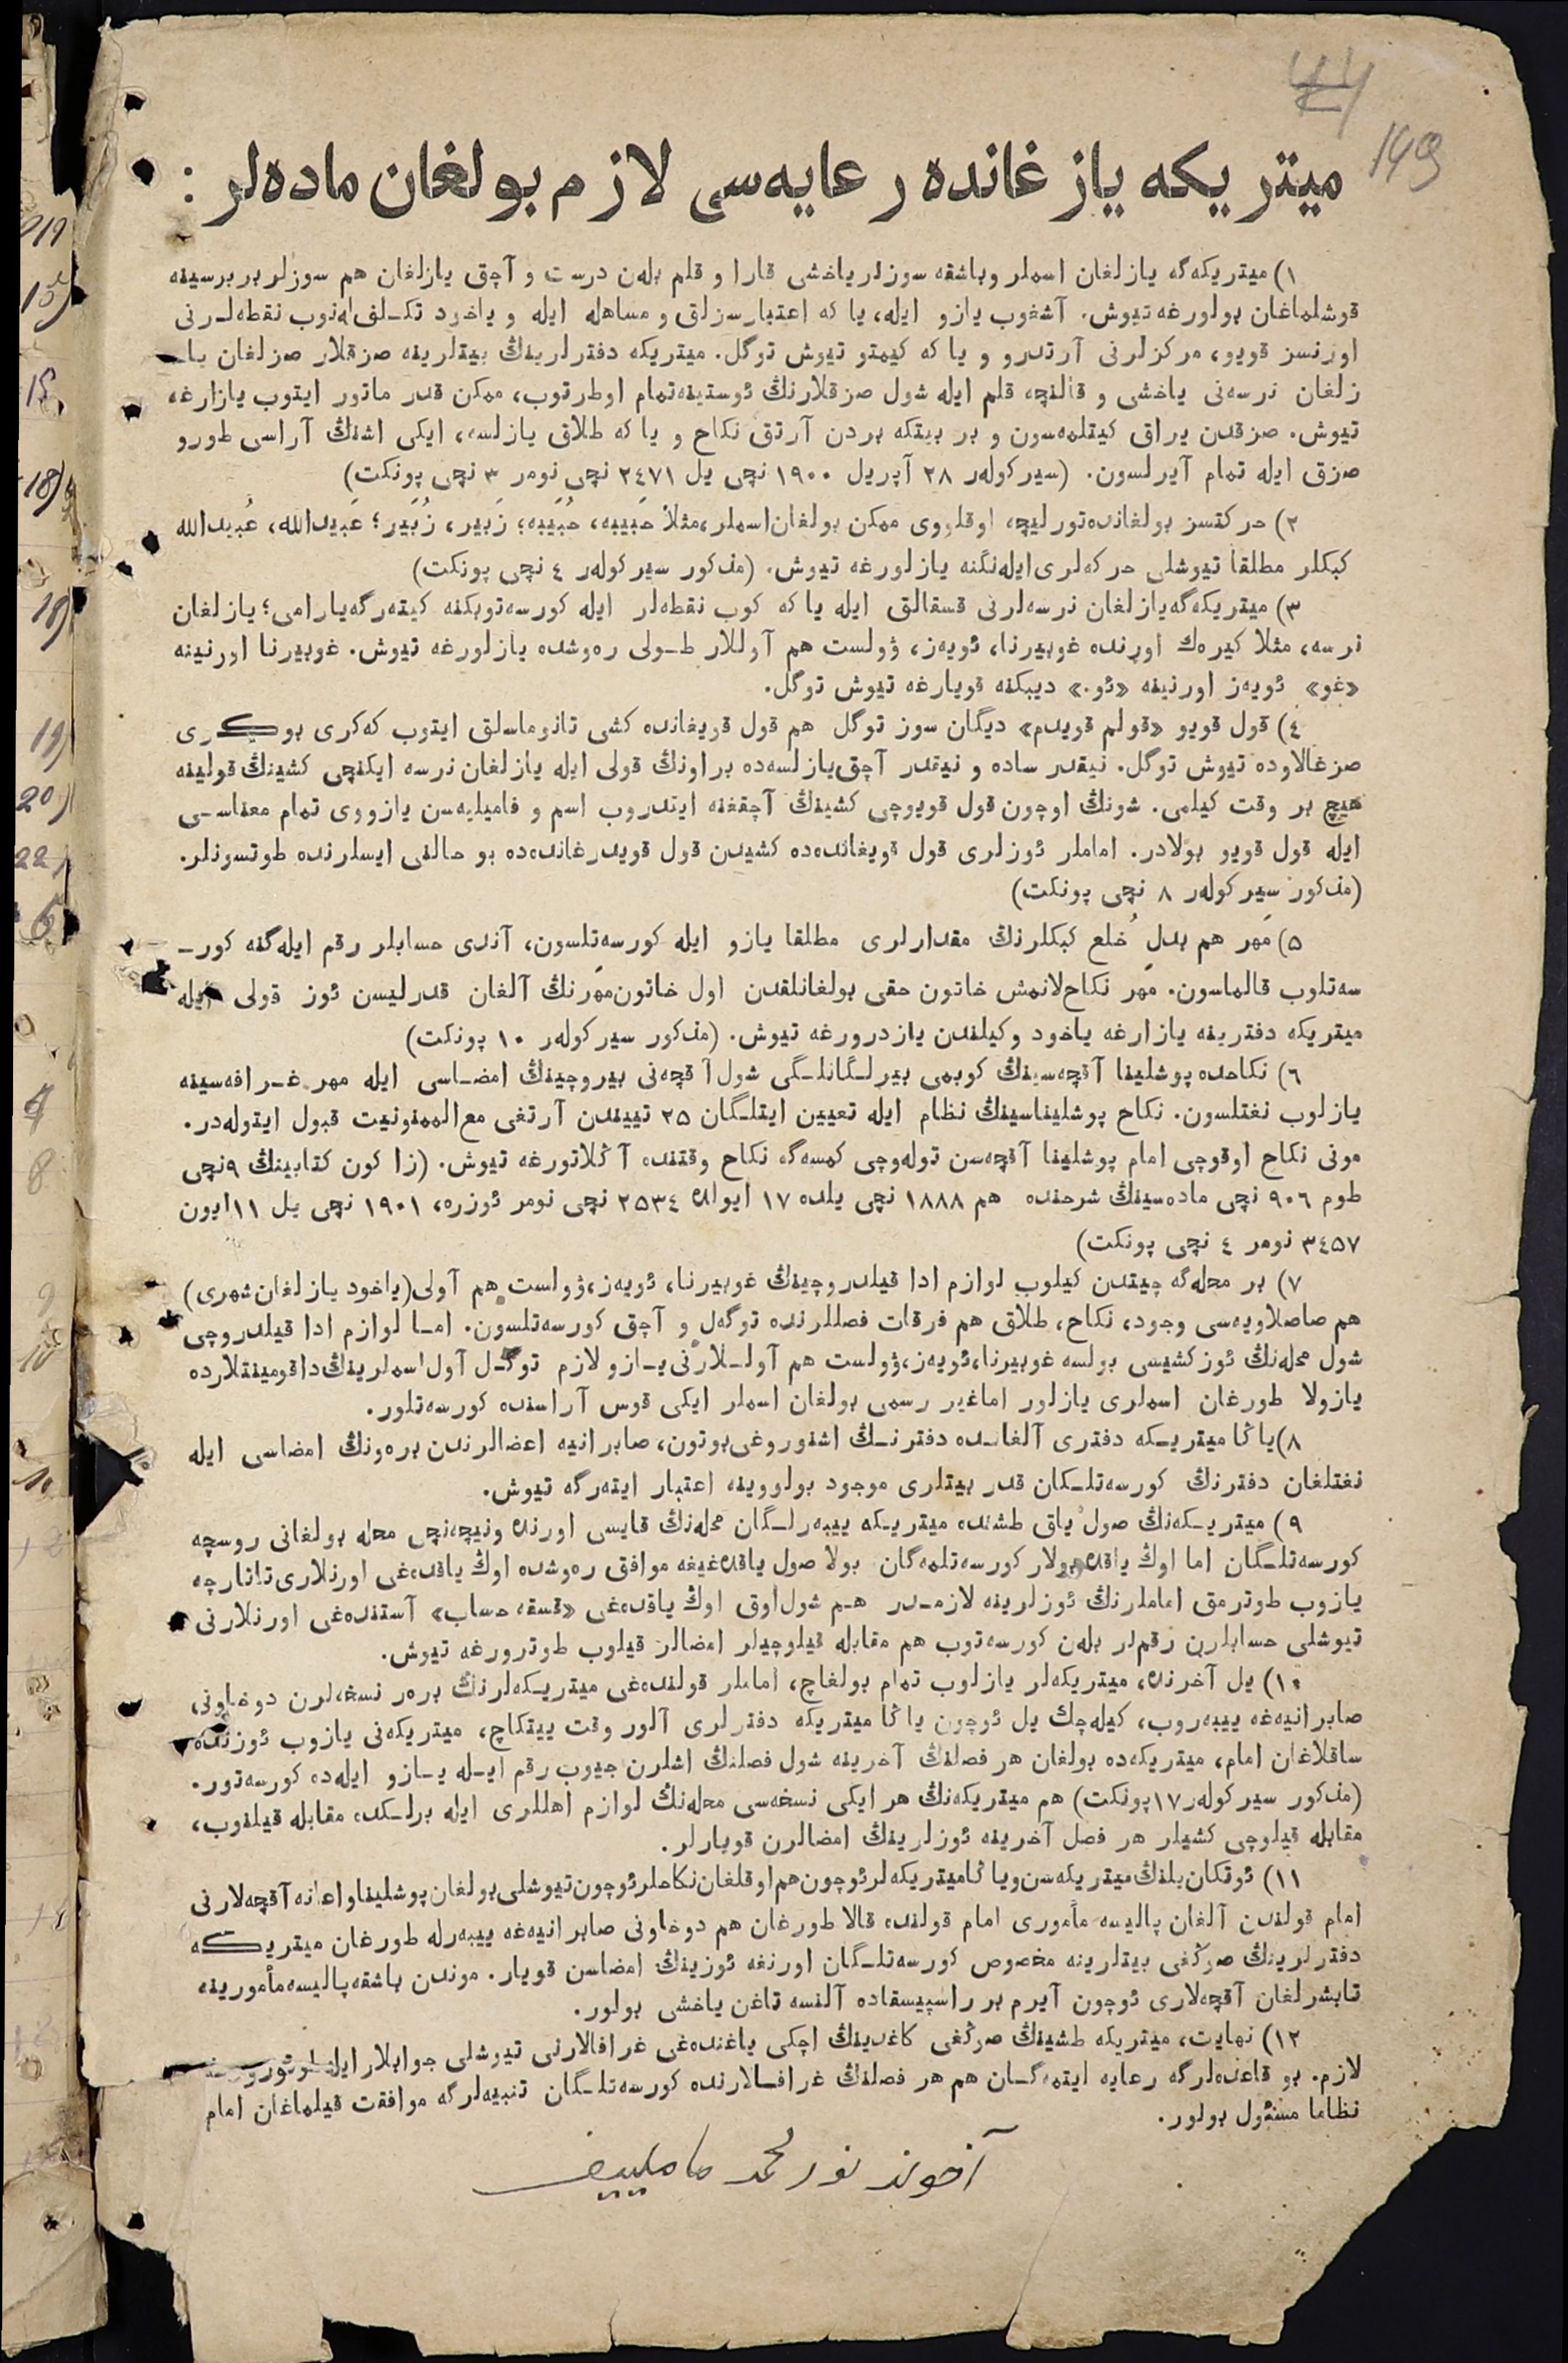 149
میتریکه یازغانده رعایه‌سی لازم بولغان ماده‌لر :
١) میتریکه‌گه یازلغان اسملر وباشقه سوزلر یاخشی قارا و قلم بلەن درست و آچق یازلغان هم سوزلر بر برسینه
قوشلماغان بولورغه تیوش. آشغوب یازو ایله، یا که اعتبارسزلق و مساهله ایله و یاخود تکـلف له‌نوب نقطه‌لـرنی
اورنسز قویو، مرکزلرنی آرتدرو و یا که کیمتو تیوش توگل. میتریکه دفترلرینڭ بیتلرینه صزقلار صزلغان یا‍ــ
زلغان نرسه‌نی یاخشی و قالنچه قلم ایله شول صزقلارنڭ ئوستینه‌تمام اوطرتوب، ممکن قدر ماتور ایتوب یازارغه
تیوش. صزقدن یراق کیتلمه‌سون و بر بیتکه بردن آرتق نکاح و یا که طلاق یازلسه، ایکی اشنڭ آراسی طورو
صزق ایله تمام آیرلسون. (سیرکولەر ٢٨ آپریل ١٩٠٠ نچی یل ٢٤٧١ نچی نومر ٣ نچی پونکت)
٢) حرکتسز بولغانده‌تورلیچه اوقلووی ممکن بولغان‌اسملر،مثلاً حَبیبه، حُبَیبه؛ زَبیر، زُبَیر؛ عَبیدالله، عُبیدالله
کبکلر مطلقا تیوشلی حرکه‌لری‌ایله‌نگنه یازلورغه تیوش. (مذکور سیرکولەر ٤ نچی پونکت)
٣) میتریکه‌گه‌یازلغان نرسه‌لرنی قسقالق ایله یا که کوب نقطه‌لر ایله کورسه‌توبکنه کیته‌رگه‌یارامی؛ یازلغان
نرسه، مثلا کیره‌ك اورنده غوبیرنا، ئویه‌ز، ۋولست هم آوللار طـولی ره‌وشده یازلورغه تیوش. غوبیرنا اورنینه
«غو» ئویه‌ز اورنینه «ئو.» دیبکنه قویارغه تیوش توگل.
٤) قول قویو «قولم قویدم» دیگان سوز توگل هم قول قویغانده کشی تانوماسلق ایتوب که‌کری بوکـری
صزغالاوده تیوش توگل. نیقدر ساده و نیقدر آچق‌یازلسه‌ده براونڭ قولی ایله یازلغان نرسه ایکنچی کشینڭ قولینه
هیچ بر وقت کیلمی. شونڭ اوچون قول قویوچی کشینڭ آچقغنه ایتدروب اسم و فامیلیه‌سن یازووی تمام معناسـی
ایله قول قویو بولادر. اماملر ئوزلری قول قویغانده‌ده کشیدن قول قویدرغانده‌ده بو حالنی ایسلرنده طوتسونلر.
(مذکور سیرکولەر ٨ نچی پونکت)
٥) مَهر هم بدلِ خُلع کبکلرنڭ مقدارلری مطلقا یازو ایله کورسه‌تلسون، آندی حسابلر رقم ایله‌گنه کورــ
سه‌تلوب قالماسون. مَهر نکاح‌لانمش خاتون حقی بولغانلقدن اول خاتون‌مهرنڭ آلغان قدرلیسن ئوز قولی ایله
میتریکه دفترینه یازارغه یاخود وکیلندن یازدرورغه تیوش. (مذکور سیرکولەر ١٠ پونکت)
٦) نکاحده پوشلینا آقچه‌سینڭ کوبمی بیرلـگانلـگی شول آقچه‌نی بیروچینڭ امضـاسی ایله مهر غـرافه‌سینه
یازلوب نغتلسون. نکاح پوشلیناسینڭ نظام ایله تعیین ایتلـگان ٢٥ تییندن آرتغی مع‌الممنونیت قبول ایتوله‌در.
مونی نکاح اوقوچی امام پوشلینا آقچه‌سن توله‌وچی کمسه‌گه نکاح وقتنده آڭلاتورغه تیوش. (زاکون کتابینڭ ٩نچی
طوم ٩٠٦ نچی ماده‌سینڭ شرحنده هم ١٨٨٨ نچی یلده ١٧ ایولده ٢٥٣٤ نچی نومر ئوزره، ١٩٠١ نچی یل ١١ایون
٣٤٥٧ نومر ٤ نچی پونکت)
٧) بر محله‌گه چیتدن کیلوب لوازم ادا قیلدروچینڭ غوبیرنا، ئویه‌ز،ۋولست هم آولی(یاخود یازلغان‌شهری)
هم صاصلاویه‌سی وجود، نکاح، طلاق هم فرقات فصللرنده توگه‌ل و آچق کورسه‌تلسون. امـا لوازم ادا قیلدروچی
شول محله‌نڭ ئوز کشیسی بولسه غوبیرنا،ئویه‌ز،ۋولست هم آولـلارنی‌یـازو لازم توگـل آول‌اسملرینڭ‌داقومینتلارده
یازولا طورغان اسملری یازلور اماغیر رسمی بولغان اسملر ایکی قوس آراسنده کورسه‌تلور.
٨)یاڭا میتریـکه دفتری آلغاـنده دفترنـڭ اشنوروغی‌بوتون، صابرانیه اعضالرندن بره‌ونڭ امضاسی ایله
نغتلغان دفترنڭ کورسه‌تلـکان قدر بیتلری موجود بولووینه اعتبار ایته‌رگه تیوش.
٩) میتریـکه‌نڭ صول یاق طشنده میتریـکه ییبه‌رلـگان محله‌نڭ قایسی اورنده ونیچه‌نچی محله بولغانی روسچه
کورسه‌تلـگان اما اوڭ یاقده بولار کورسه‌تلمه‌گان بولا صول یاقده‌غیغه موافق ره‌وشده اوڭ یاقده‌غی اورنلاری‌تاتارچه
یازوب طوترمق اماملرنڭ ئوزلرینه لازمـدر هـم شول‌اوق اوڭ یاقده‌غی «قسقه حساب» آستنده‌غی اورنلارنی
تیوشلی حسابلرن رقم‌لر بلەن کورسه‌توب هم مقابله قیلوچیلر امضالر قیلوب طوترورغه تیوش.
١٠) یل آخرنده، میتریکه‌لر یازلوب تمام بولغاچ، اماملر قولنده‌غی میتریـکه‌لرنڭ بره‌ر نسخه‌لرن دوخاونی
صابرانیه‌غه ییبه‌روب، کیله‌چك یل ئوچون یاڭا میتریکه دفترلری آلور وقت ییتکاچ، میتریکه‌نی یازوب ئوزنده
ساقلاغان امام، میتریکه‌ده بولغان هر فصلنڭ آخرینه شول فصلنڭ اشلرن جیوب رقم ایـله یـازو ایله‌ده کورسه‌تور.
(مذکور سیرکولەر١٧پونکت) هم میتریکه‌نڭ هر ایکی نسخه‌سی محله‌نڭ لوازم اهللری ایله برلـکده مقابله قیلنوب،
مقابله قیلوچی کشیلر هر فصل آخرینه ئوزلرینڭ امضالرن قویارلر.
١١) ئوتکان‌یلنڭ‌میتریکه‌سن‌ویاڭامیتریکه‌لرئوچون‌هم‌اوقلغان‌نکاحلرئوچون‌تیوشلی‌بولغان‌پوشلیناواعانه‌آقچه‌لارنی
امام قولندن آلغان پالیسه مأموری امام قولنده قالا طورغان هم دوخاونی صابرانیه‌غه ییبه‌رله طورغان میتریـکـه
دفترلرینڭ صوڭغی بیتلرینه مخصوص کورسه‌تلـگان اورنغه ئوزینڭ امضاسن قویار. موندن باشقه‌پالیسه‌مأمورینه
تابشرلغان آقچه‌لاری ئوچون آیرم بر راسپیسقاده آلنسه تاغن یاخشی بولور.
١٢) نهایت، میتریکه طشینڭ صوڭغی کاغدینڭ اچکی یاغنده‌غی غرافالارنی تیوشلی جوابلار ایله
لازم. بو قاعده‌لرگه رعایه ایتمه‌گـان هم هر فصلنڭ غرافـالارنده کورسه‌تلـگان تنبیه‌لرگه موافقت قیلماغان امام
نظاما مسئول بولور.
آخوند نور محمد مامليیف